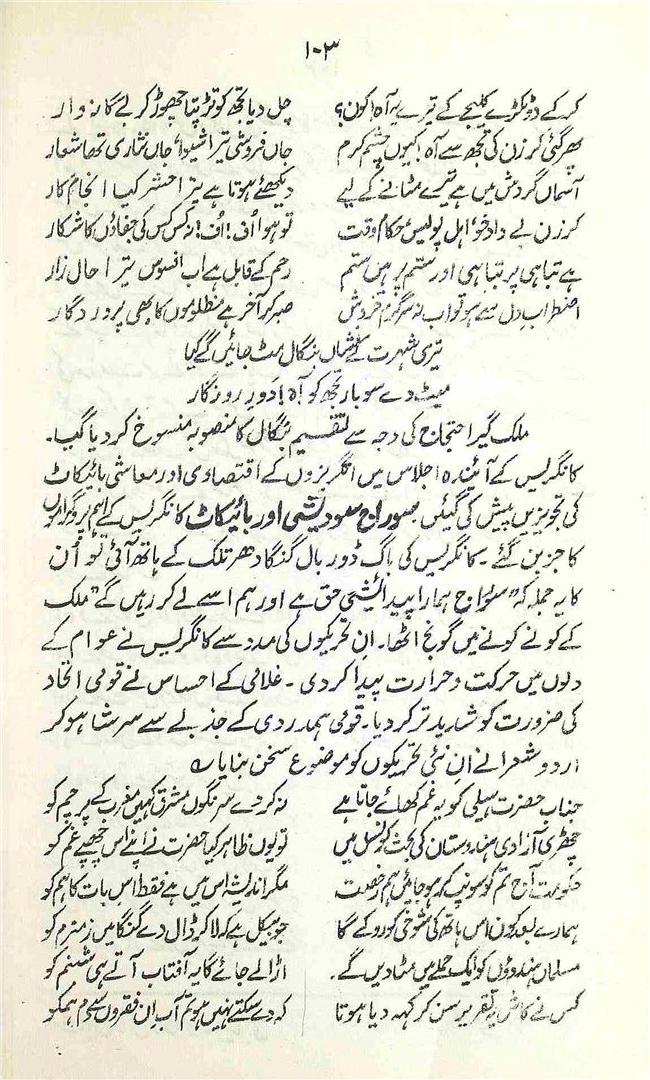 ۱۰۳
کر کے دو ٹکڑے کلیجے کے ترے یہ آہ! کون؟ چل دیا تجھ کو تڑپتا چھوڑ کر بے گانہ وار
پھر گئی کرزن کی تجھ سے آہ! کیوں چشم کرم جاں فروشی تیرا شیوا، جاں نثاری تھا شعار
آسماں گردش میں ہے تیرے مٹانے کے لیے دیکھئے ہوتا ہے تیرا حشر کیا انجام کار
کرزن بے داد خو، اہل پولیس، حکام وقت تو ہوا اُف! اُف! نہ کس کس کی جفاؤں کا شکار
ہے تباہی پر تباہی اور ستم پر ہیں ستم رحم کے قابل ہے اب افسوس تیرا حال زار
اضطراب دل سے ہو تو اب نہ سرگرم خروش صبر کر آخر ہے مظلوموں کا بھی پروردگار
تیری شہرت کے نشاں بنگال مٹ جائیں گے کیا
میٹ دے سو بار تجھ کو آہ! دَورِ روزگار
ملک گیر احتجاج کی وجہ سے تقسیم بنگال کا منصوبہ منسوخ کر دیا گیا۔
کانگریس کے آئیندہ اجلاس میں انگریزوں کے اقتصادی اور معاشی بائیکاٹ
کی تجویزیں پیش کی گئیں۔ سوراج سودیشی اور بائیکاٹ کانگریس کے اہم پروگراموں
کا جز بن گئے۔ کانگریس کی باگ ڈور بال گنگا دھر تلک کے ہاتھ آئی تو اُن
کا یہ جملہ کہ "سوراج ہمارا پیدائیشی حق ہے اور ہم اسے لے کر رہیں گے" ملک
کے کونے کونے میں گونج اٹھا۔ ان تحریکوں کی مدد سے کانگریس نے عوام کے
دلوں میں حرکت و حرارت پیدا کر دی۔ غلامی کے احساس نے قومی اتحاد
کی ضرورت کو شدید تر کر دیا۔ قومی ہمدردی کے جذبے سے سرشار ہو کر
اردو شعرا نے ان نئی تحریکوں کو موضوع سخن بنایا ؎
جناب حضرت ہیلی کو یہ غم کھائے جاتا ہے نہ کر دے سرنگوں مشرق کہیں مغرب کے پرچم کو
چھڑی آزادی ہندوستان کی بحث کونسل میں تو یوں ظاہر کیا حضرت نے اپنے اس چھپے غم کو
حکومت آج تم کو سونپ کر ہو جائیں ہم رخصت مگر اندیشہ اس میں ہے فقط اس بات کا ہم کو
ہمارے بعد کون اس ہاتھ کی شوخی کو روکے گا جو ہیکل ہے کہ لا کر ڈال دے گنگا میں زمزم کو
مسلماں ہندوؤں کو ایک حملے میں مٹا دیں گے۔ اڑا لے جائے گا یہ آفتاب آتے ہی شبنم کو
کس نے کاش یہ تقریر سن کر کہہ دیا ہوتا کہ دے سکتے نہیں ہو تم آب ان فقروں سے دم ہمکو